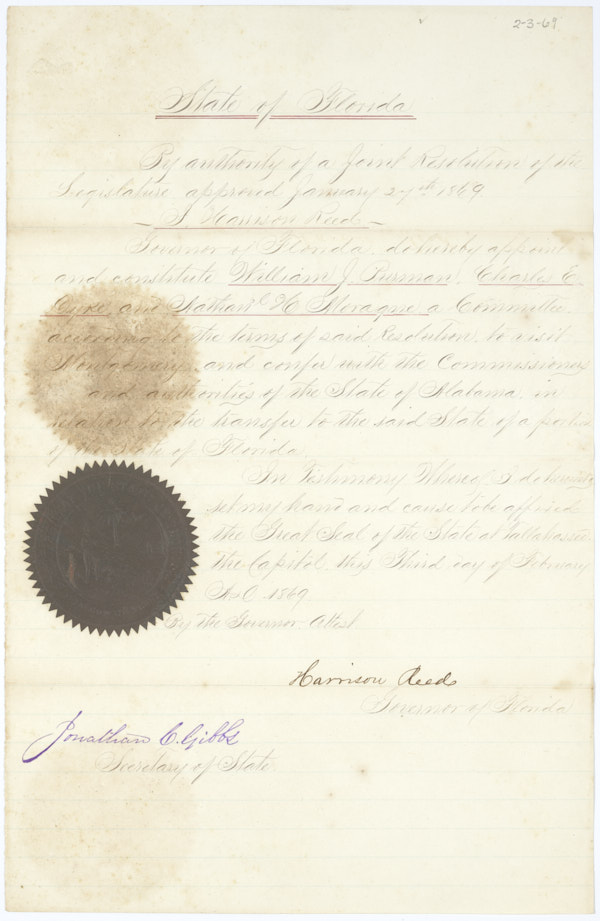 2-3-69
State of Florida
By authority of a Joint Resolution of the
Legislature approved January 27th 1869
I, Harrison Reed
Governor of Florida, do hereby appoint
and constitute William J. Purman, Charles E.
Dyke and Nathanl H. Moragne a Committee,
according to the terms of said Resolution, to visit
Montgomery, and confer with the Commissioners
and authorities of the State of Alabama, in
relation to the transfer to the said State of a portion
of the State of Florida.
In Testimony Whereof I do hereunto
set my hand and cause to be affixed
the Great Seal of the State at Tallahassee
the Capitol, this Third day of February
A.D. 1869.
By the Governor, Attest
Harrison Reed
Governor of Florida
Jonathan C. Gibbs
Secretary of State.